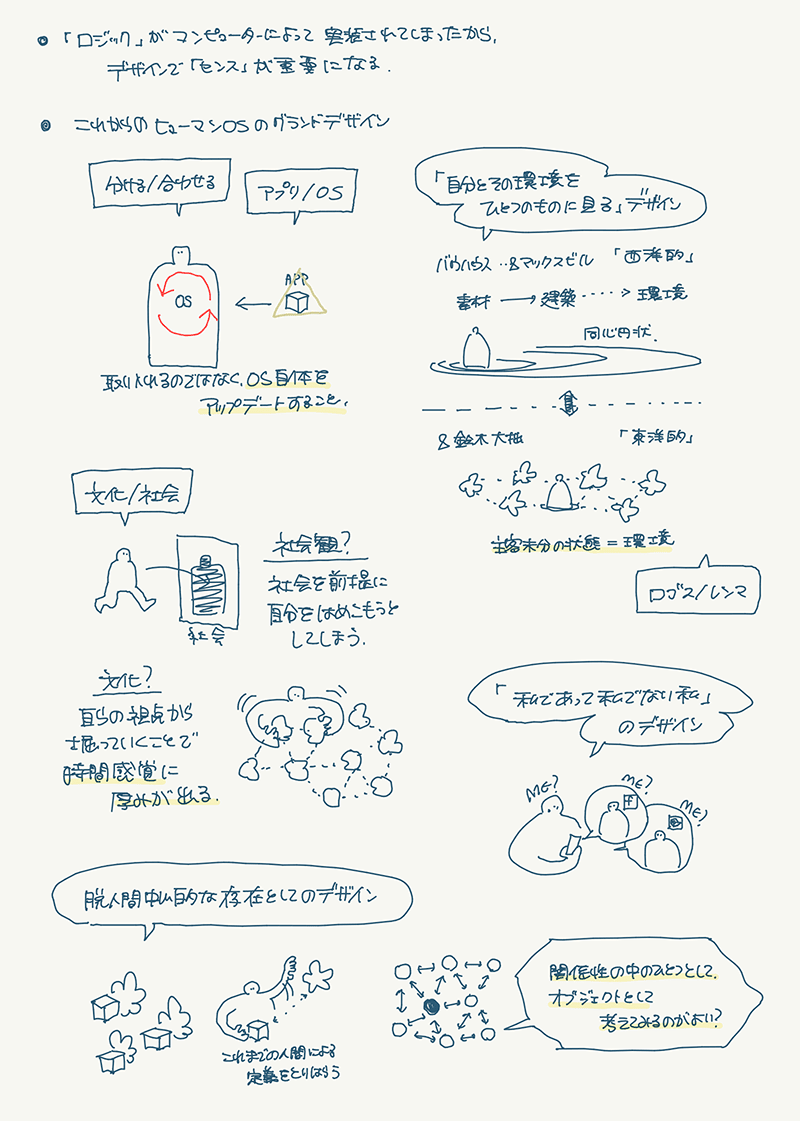 「ロジック」がコンピューターによって実装されてしまったから、
デザインで「センス」が重要になる.
これからのヒューマンOSのグランドデザイン
分ける/合わせる
アプリ/OS
OS
APP
取り入れるのではなく、OS自体を
アップデートすること.
「自分とその環境を
ひとつのものに見る」デザイン
バウハウス ‥&マックスビル 「西洋的」
素材 → 建築 ····> 環境
同心円状.
&鈴木大拙 「東洋的」
主客未分の状態=環境
ロゴス/レンマ
文化/社会
社会
社会観?
社会を前提に
自分をはめこもうと
してしまう.
文化?
自らの視点から
掘っていくことで
時間感覚に
厚みが出る.
「私であって私でない私」
のデザイン
ME?
ME?
ME?
脱人間中心的な存在としてのデザイン
これまでの人間による
定義をとりはらう
関係性の中のひとつとして.
オブジェクトとして
考えてみるのがよい?